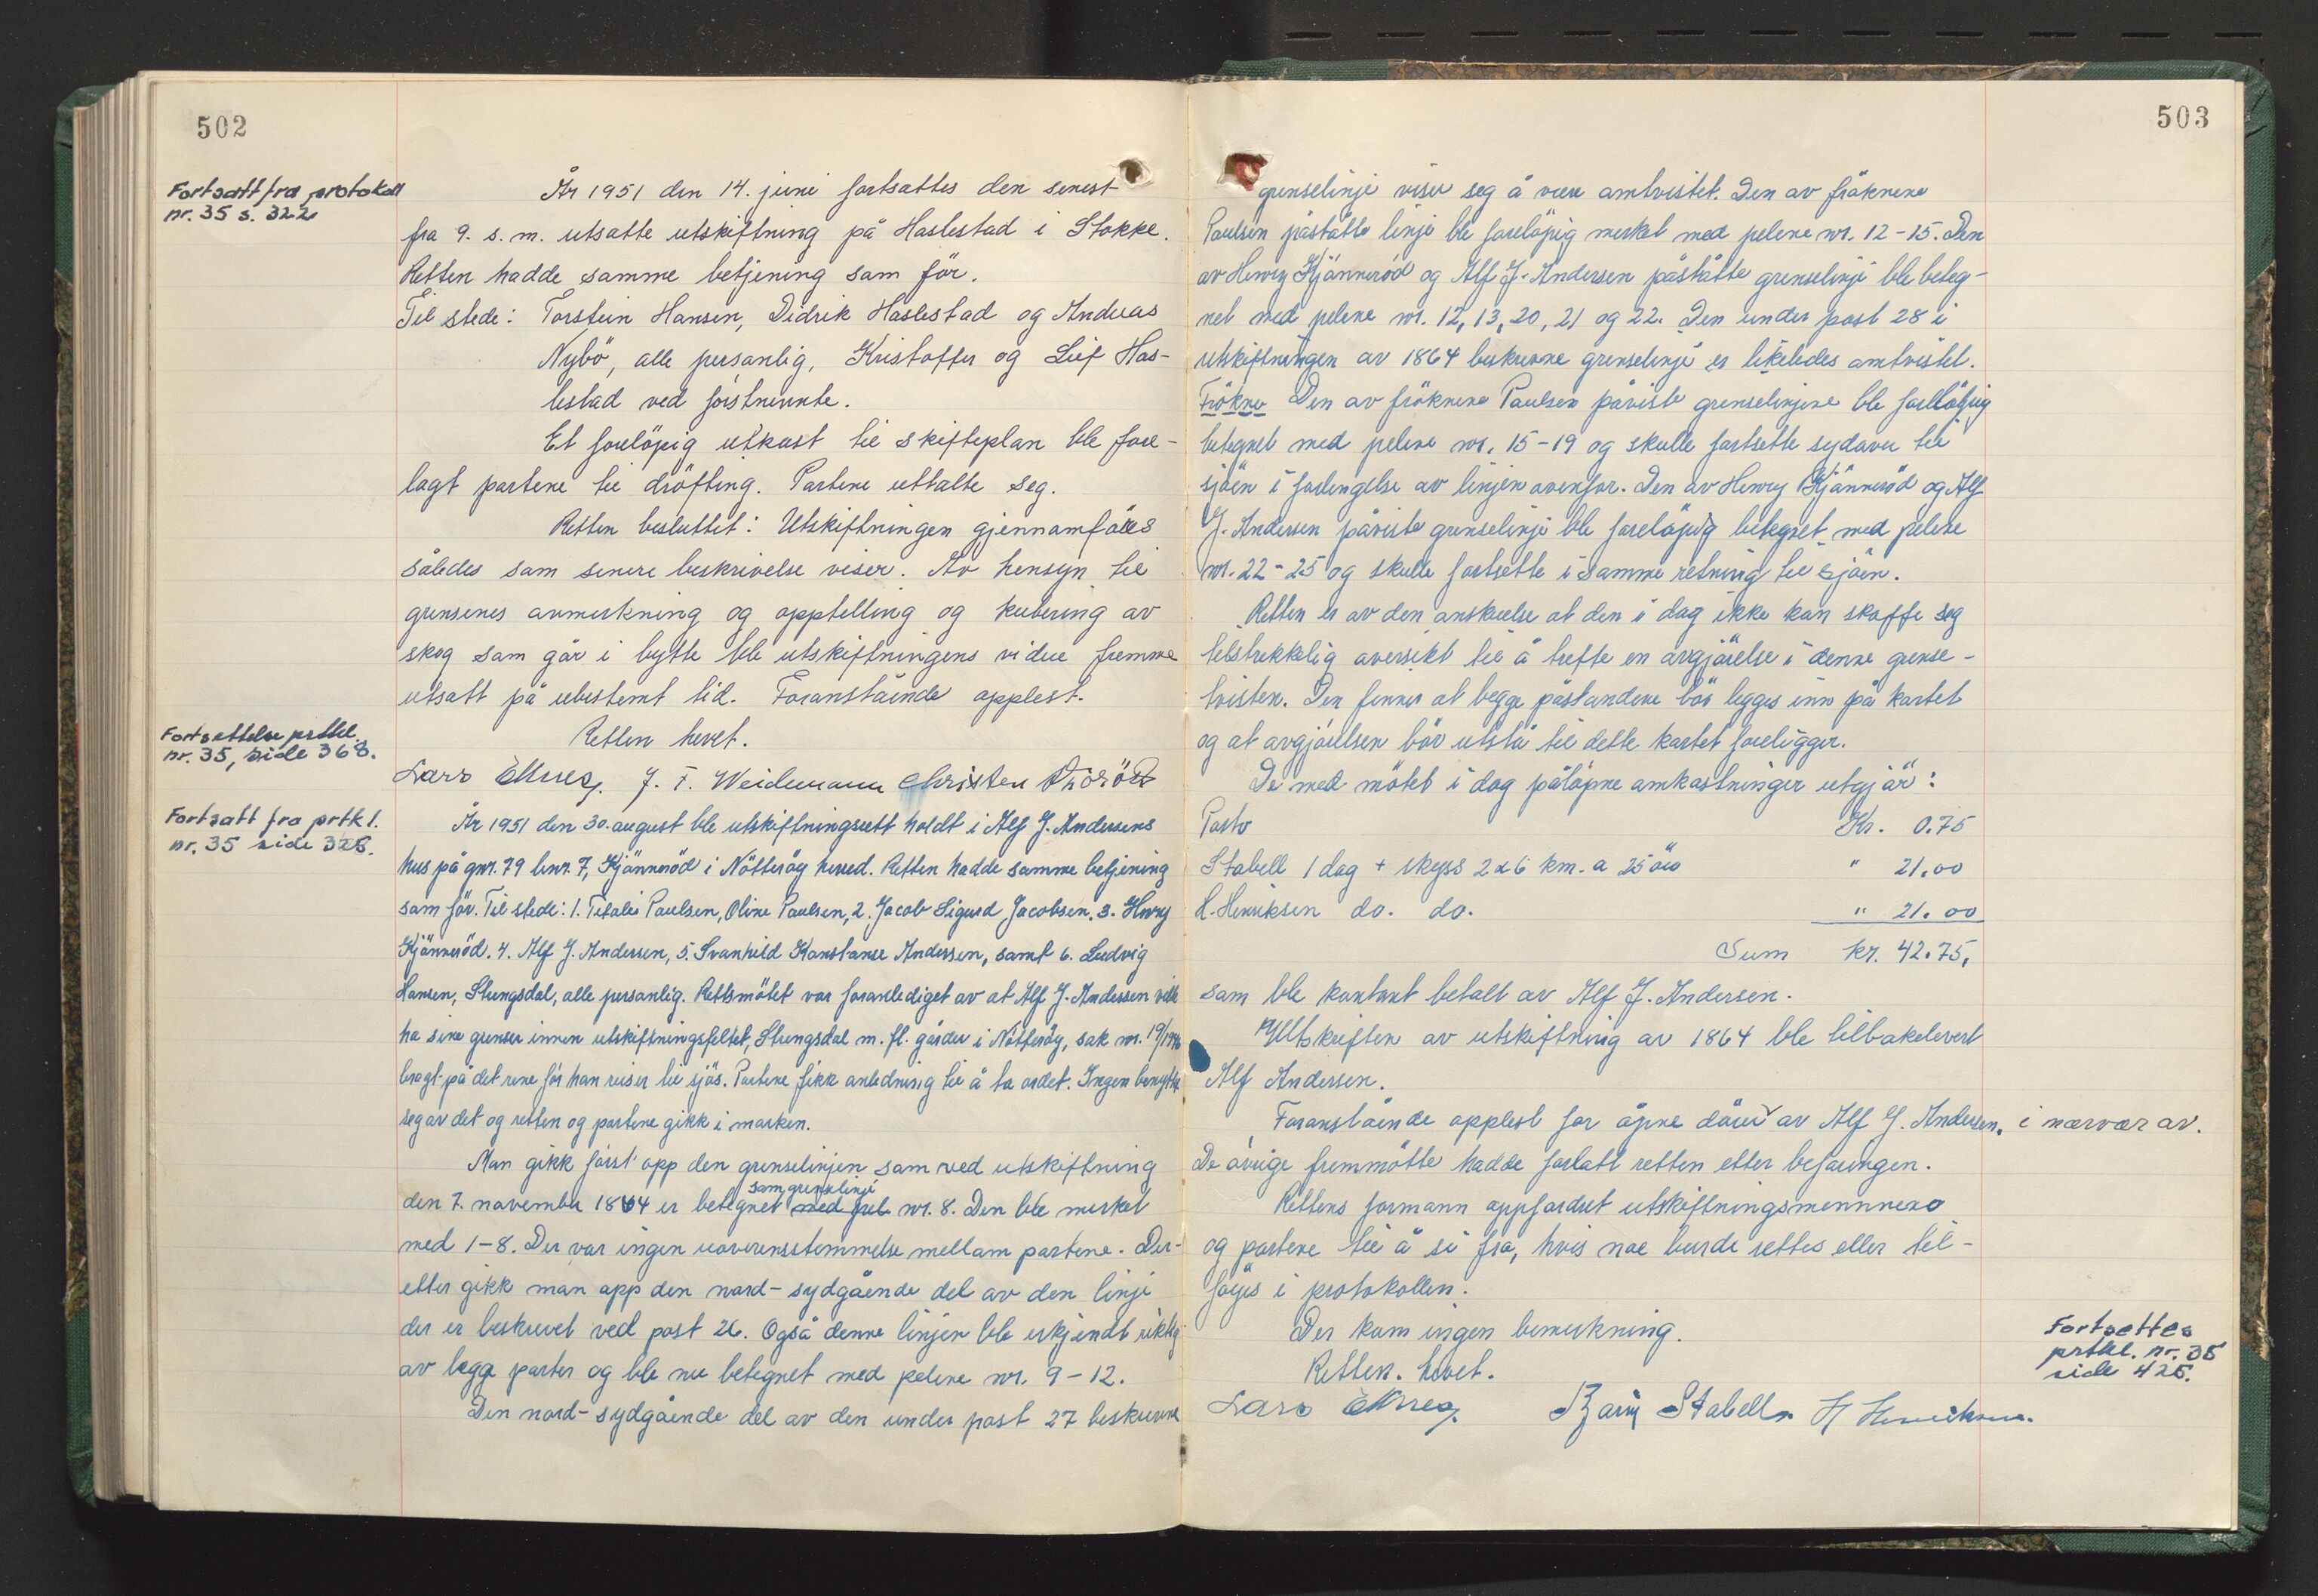 502
Fortsatt fra protokoll
nr. 35 s. 322
År 1951 den 14. juni fortsattes den senest
fra 9. s. m. utsatte utskiftning på Haslestad i Stokke.
Retten hadde samme betjening som för.
Til stede: Torstein Hansen, Didrik Haslestad og Andreas
Nybö, alle personlig, Kristoffer og Leif Has-
lestad ved förstnevnte.
Et forelöpig utkast til skifteplan ble fore-
lagt partene til dröfting. Partene uttalte seg.
Retten besluttet: Utskiftningen gjennomföres
således som senere beskrivelse viser. Av hensyn til
grensenes avmerkning og opptelling og kubering av
skog som går i bytte ble utskiftningens videre fremme
utsatt på ubestemt tid. Foranstående opplest.
Retten hevet.
Fortsettelse prtkl.
nr. 35, side 368.
Lars J. F. Weidemann Christen
Fortsatt fra prtkl.
nr. 35 side 328.
År 1951 den 30. august ble utskiftningsrett holdt i Alf J. Andersens
hus på gnr. 79 bnr. 7, Kjönneröd i Nötteröy herred. Retten hadde samme betjening
som för. Til stede: 1. Paulsen, Oline Paulsen, 2. Jacob Sigurd Jacobsen. 3. Henry
Kjönneröd. 4. Alf J. Andersen, 5. Svanhild Konstanse Andersen, samt 6. Ludvig
Hansen, Stungsdal, alle personlig. Rettsmötet var foranlediget av at Alf J. Andersen ville
ha sine grenser innen utskiftningsfeltet, Stungsdal m. fl. gårder i Nötteröy, sak nr. 19/1946
bragt på det rene för han reiser til sjös. Partene fikk anledning til å ta ordet. Ingen benyttet
seg av det og retten og partene gikk i marken.
Man gikk först opp den grenselinjen som ved utskiftning
som grenselinje
den 7. november 1864 er betegnet med pel nr. 8. Den ble merket
med 1-8. Der var ingen uoverensstemmelse mellom partene. Der-
etter gikk man opp den nord-sydgående del av den linje
der er beskrevet ved post 26. Også denne linjen ble erkjendt riktig
av begge parter og ble nu betegnet med pelene nr. 9-12.
Den nord-sydgående del av den under post 27 beskrevne
503
grenselinje viser seg å være omtvistet. Den av fröknene
Paulsen påståtte linje ble forelöpig merket med pelene nr. 12-15. Den
av Henry Kjönneröd og Alf J. Andersen påståtte grenselinje ble beteg-
net med pelene nr. 12, 13, 20, 21 og 22. Den under post 28 i
utskiftningen av 1864 beskrevne grenselinje er likeledes omtvistet.
Frökne Den av fröknene Paulsen påviste grenselinjene ble forelöpig
betegnet med pelene nr. 15-19 og skulle fortsette sydover til
sjöen i forlengelse av linjen ovenfor. Den av Henry Kjönneröd og Alf
J. Andersen påviste grenselinje ble forelöpig betegnet med pelene
nr. 22-25 og skulle fortsette i samme retning til sjöen.
Retten er av den anskuelse at den i dag ikke kan skaffe seg
tilstrekkelig oversikt til å treffe en avgjörelse i denne grense-
tvisten. Den finner at begge påstandene bör legges inn på kartet
og at avgjörelsen bör utstå til dette kartet foreligger.
De med mötet i dag pålöpne omkostninger utgjör:
Porto Kr. 0.75
Stabell 1 dag + skyss 2x6 km. a 25 öre " 21.00
H. Henriksen do. do. " 21.00
Sum kr. 42.75,
som ble kontant betalt av Alf J. Andersen.
Utskriften av utskiftning av 1864 ble tilbakelevert
Alf Andersen.
Foranstående opplest for åpne dörer av Alf J. Andersen. i nærvær av.
De övrige fremmötte hadde forlatt retten etter befaringen.
Rettens formann oppfordret utskiftningsmennene
og partene til å si fra, hvis noe burde rettes eller til-
föyes i protokollen.
Der kom ingen bemerkning.
Retten. hevet.
Fortsettes
prtkl. nr. 35
side 425.
Lars Stabell. H Henriksen.